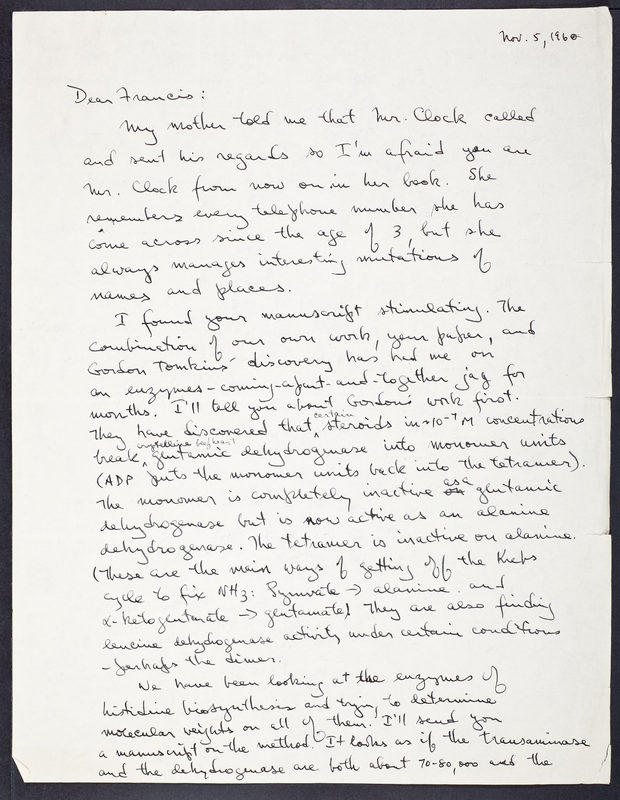 Nov. 5, 1960
Dear Francis:
My mother told me that Mr. Clock called
and sent his regards so I'm afraid you are
Mr. Clock from now on in her book. She
remembers every telephone number she has
come across since the age of 3, but she
always manages interesting mutations of
names and places.
I found your manuscript stimulating. The
combination of our own work, your paper, and
Gordon Tomkins' discovery has had me on
an enzymes-coming-apart-and-together jag for
months. I'll tell you about Gordon's work first.
They have discovered that certain steroids in ~10⁻⁷ M concentrations
break crystalline beef heart glutamic dehydrogenase into monomer units
(ADP puts the monomer units back into the tetramer).
The monomer is completely inactive as a glutamic
dehydrogenase but is now active as an alanine
dehydrogenase. The tetramer is inactive on alanine.
(These are the main ways of getting off the Krebs
cycle to fix NH3: Pyruvate → alanine and
α-ketoglutarate → glutamate! They are also finding
leucine dehydrogenase activity under certain conditions
- perhaps the dimer.
We have been looking at the enzymes of
histidine biosynthesis and trying to determine
molecular weights on all of them. I'll send you
a manuscript on the method. It looks as if the transaminase
and the dehydrogenase are both about 70-80,000 and the